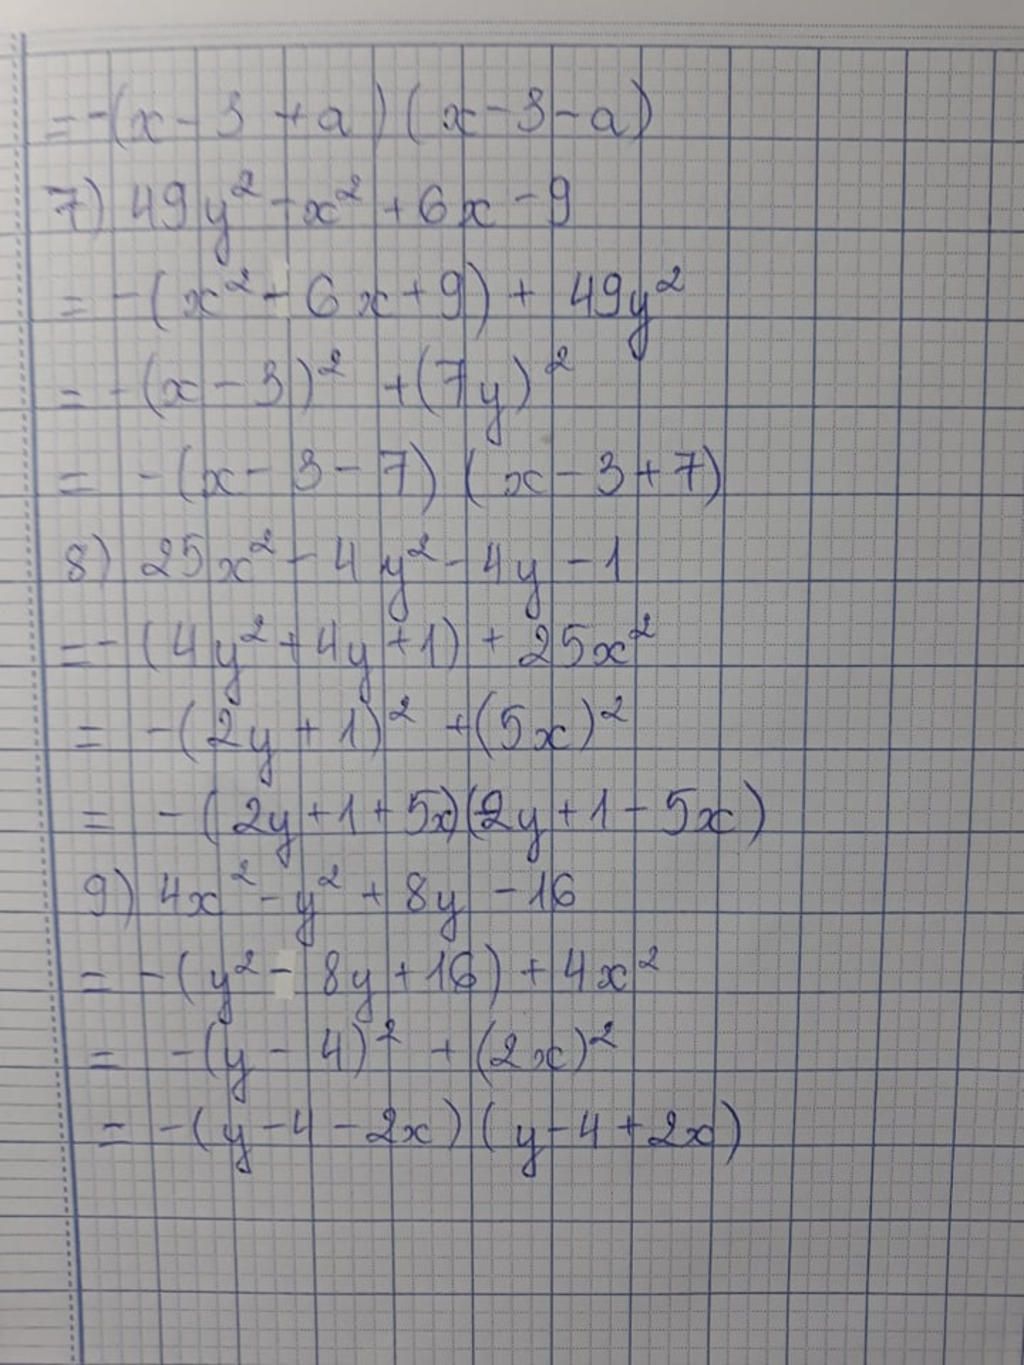 = -(x - 3 + a)(x - 3 - a)
7) 49y² - x² + 6x - 9
= -(x² - 6x + 9) + 49y²
= -(x - 3)² + (7y)²
= -(x - 3 - 7)(x - 3 + 7)
8) 25x² - 4y² - 4y - 1
= -(4y² + 4y + 1) + 25x²
= -(2y + 1)² + (5x)²
= -(2y + 1 + 5x)(2y + 1 - 5x)
9) 4x² - y² + 8y - 16
= -(y² - 8y + 16) + 4x²
= -(y - 4)² + (2x)²
= -(y - 4 - 2x)(y - 4 + 2x)